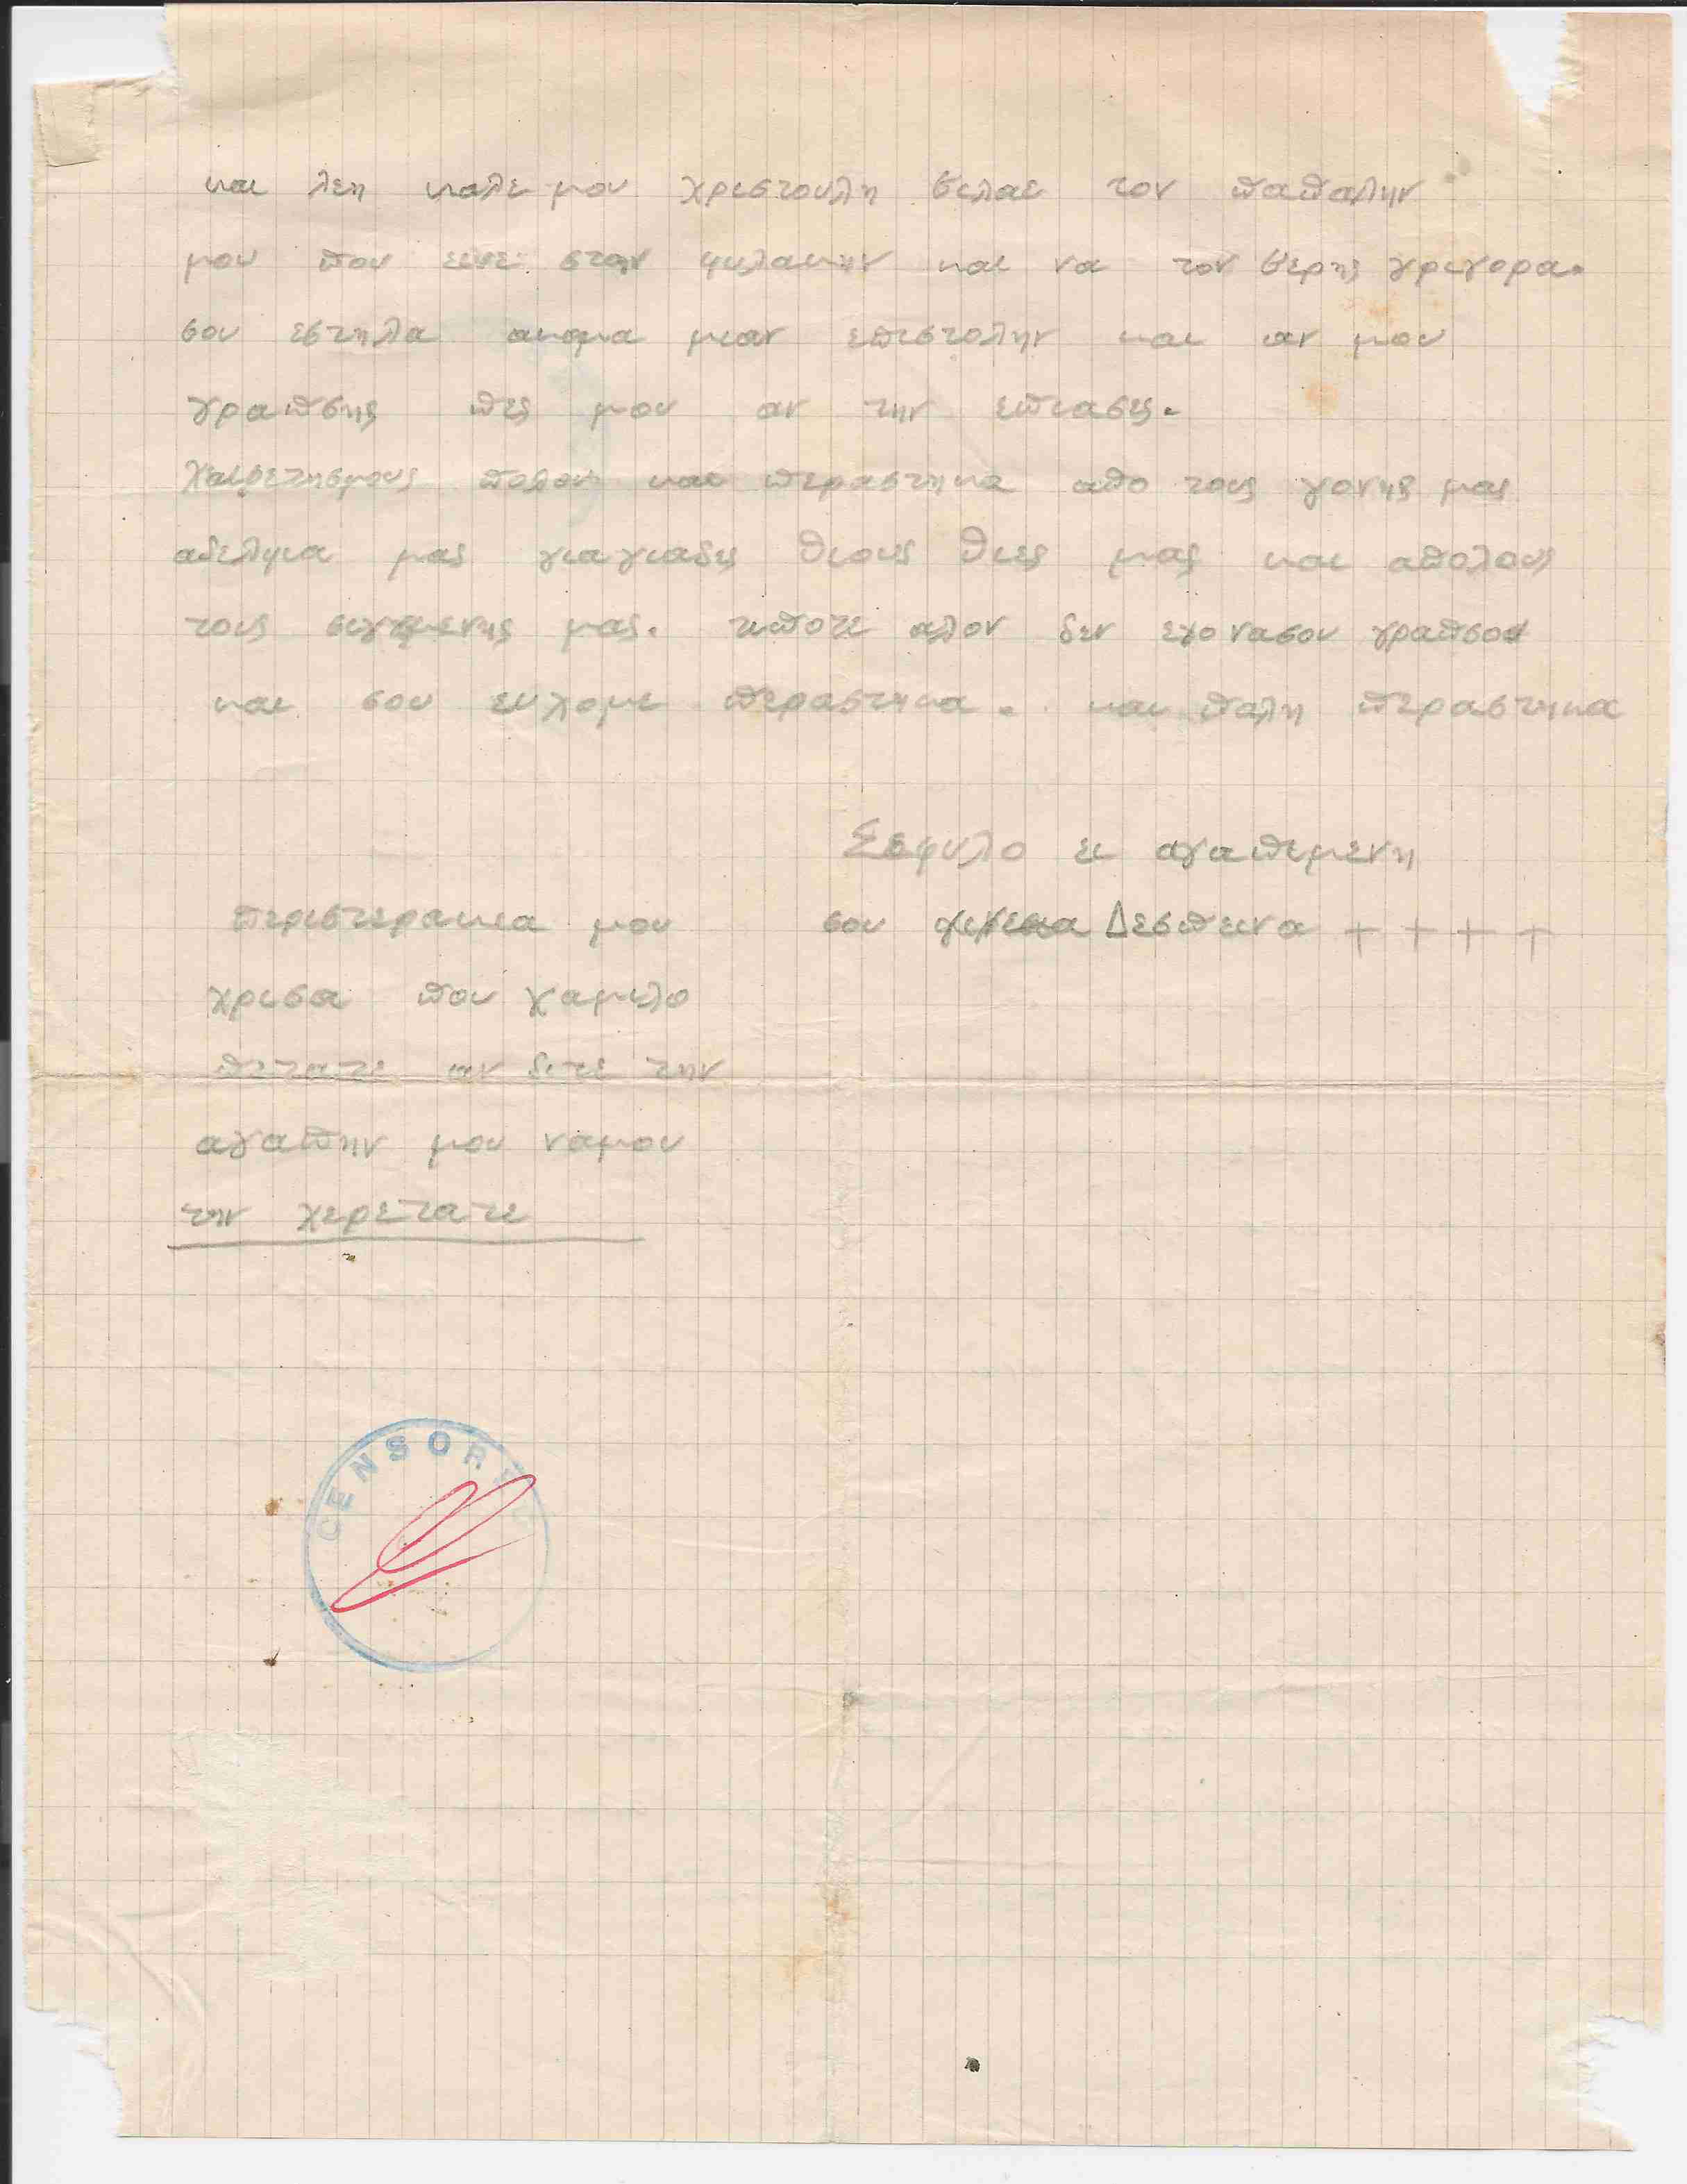 και λεη καλε μου χριστουλη φιλαε τον παπακην
μου που εινε στην φυλακην και να τον φερης γριγορα.
σου εστηλα ακομα μιαν επιστολην και αν μου
γραπσης πες μου αν την επιασες.
Χαιρετησμους πολους και περαστηκα απο τους γονης μας
αδελφια μας γιαγιαδες θιους θιες μας και απολους
τους σιγγενης μας. τιποτε αλον δεν εχο νασου γραπσο
και σου ευχομε περαστηκα. και παλη περαστηκα
Σεφυλο ει αγαπεμενη
σου Δεσπεινα + + + +
περιστερακια μου
χρισα που χαμιλο
πετατε αν διτε την
αγαπην μου ναμου
την χερετατε
CENSORED